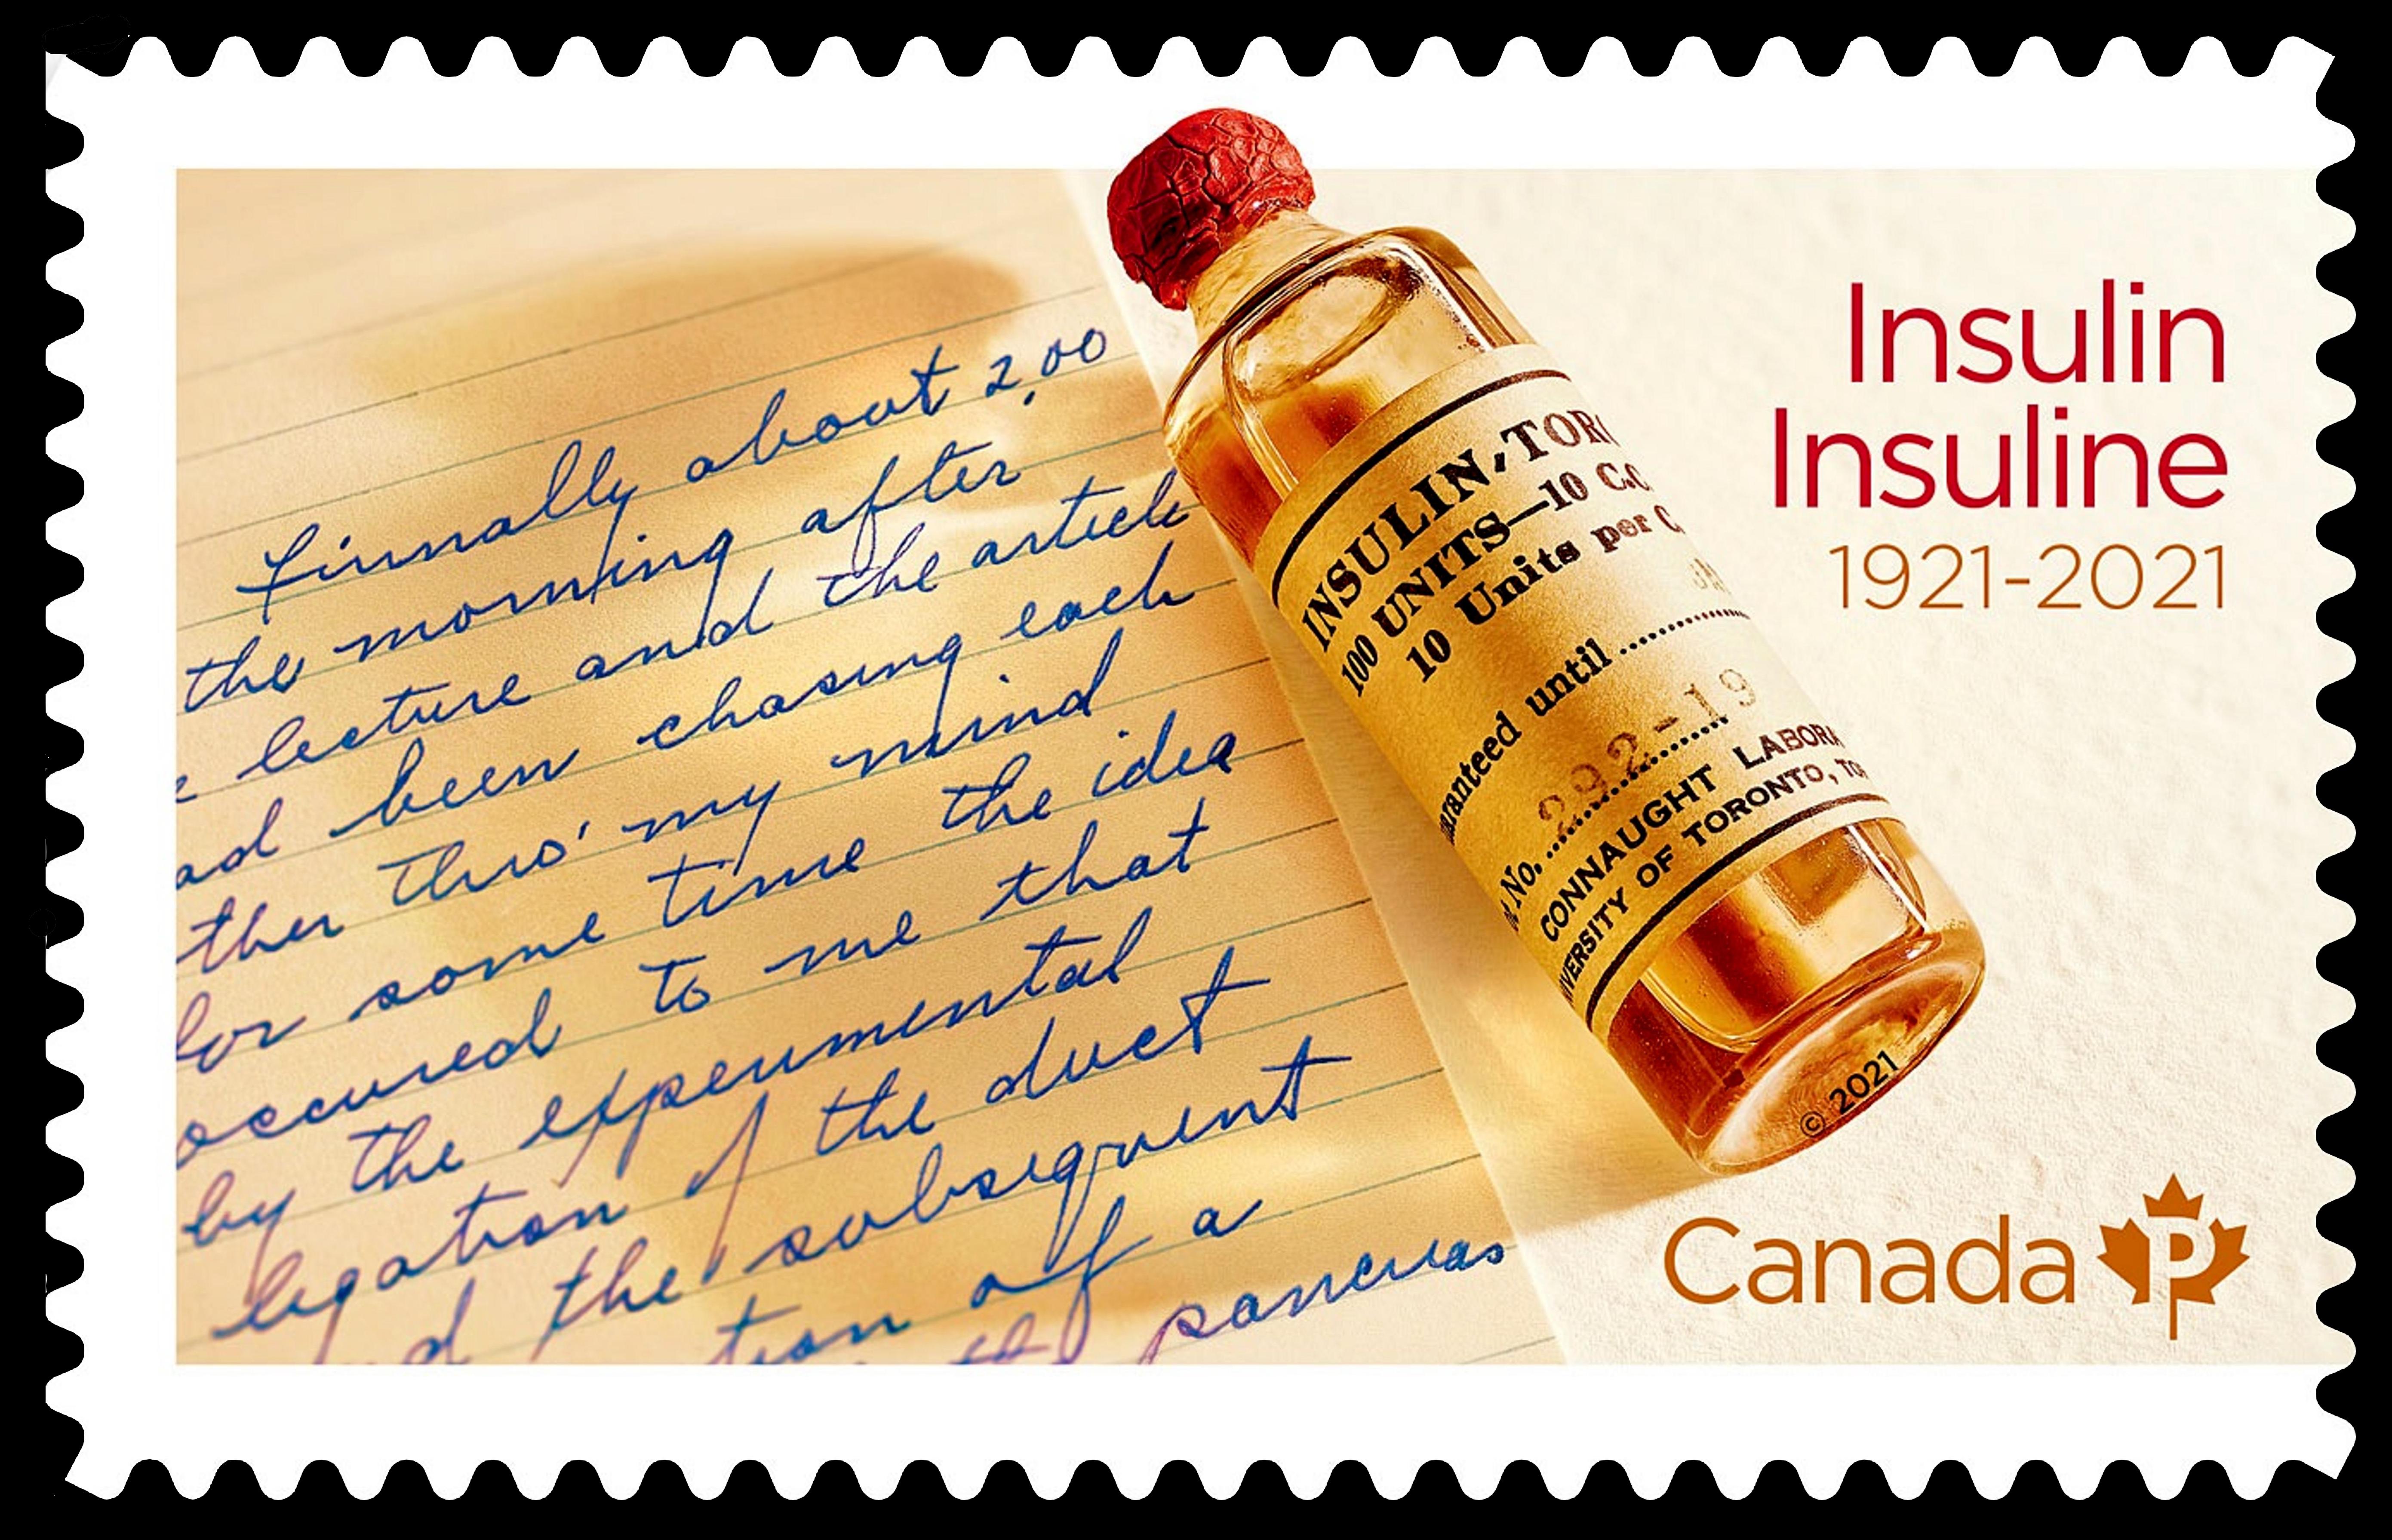 Finnally about 2,00
the morning after
lecture and the article
ad been chasing each
ther thro' my mind
for some time the idea
occured to me that
by the experimental
ligation of the duct
d the subsequent
tion of a
pancreas
INSULIN, TORO
100 UNITS—10 C.C
10 Units per C
JA
uaranteed until
292-19
No.
CONNAUGHT LABORA
IVERSITY OF TORONTO, TO
© 2021
Insulin
Insuline
1921-2021
Canada P